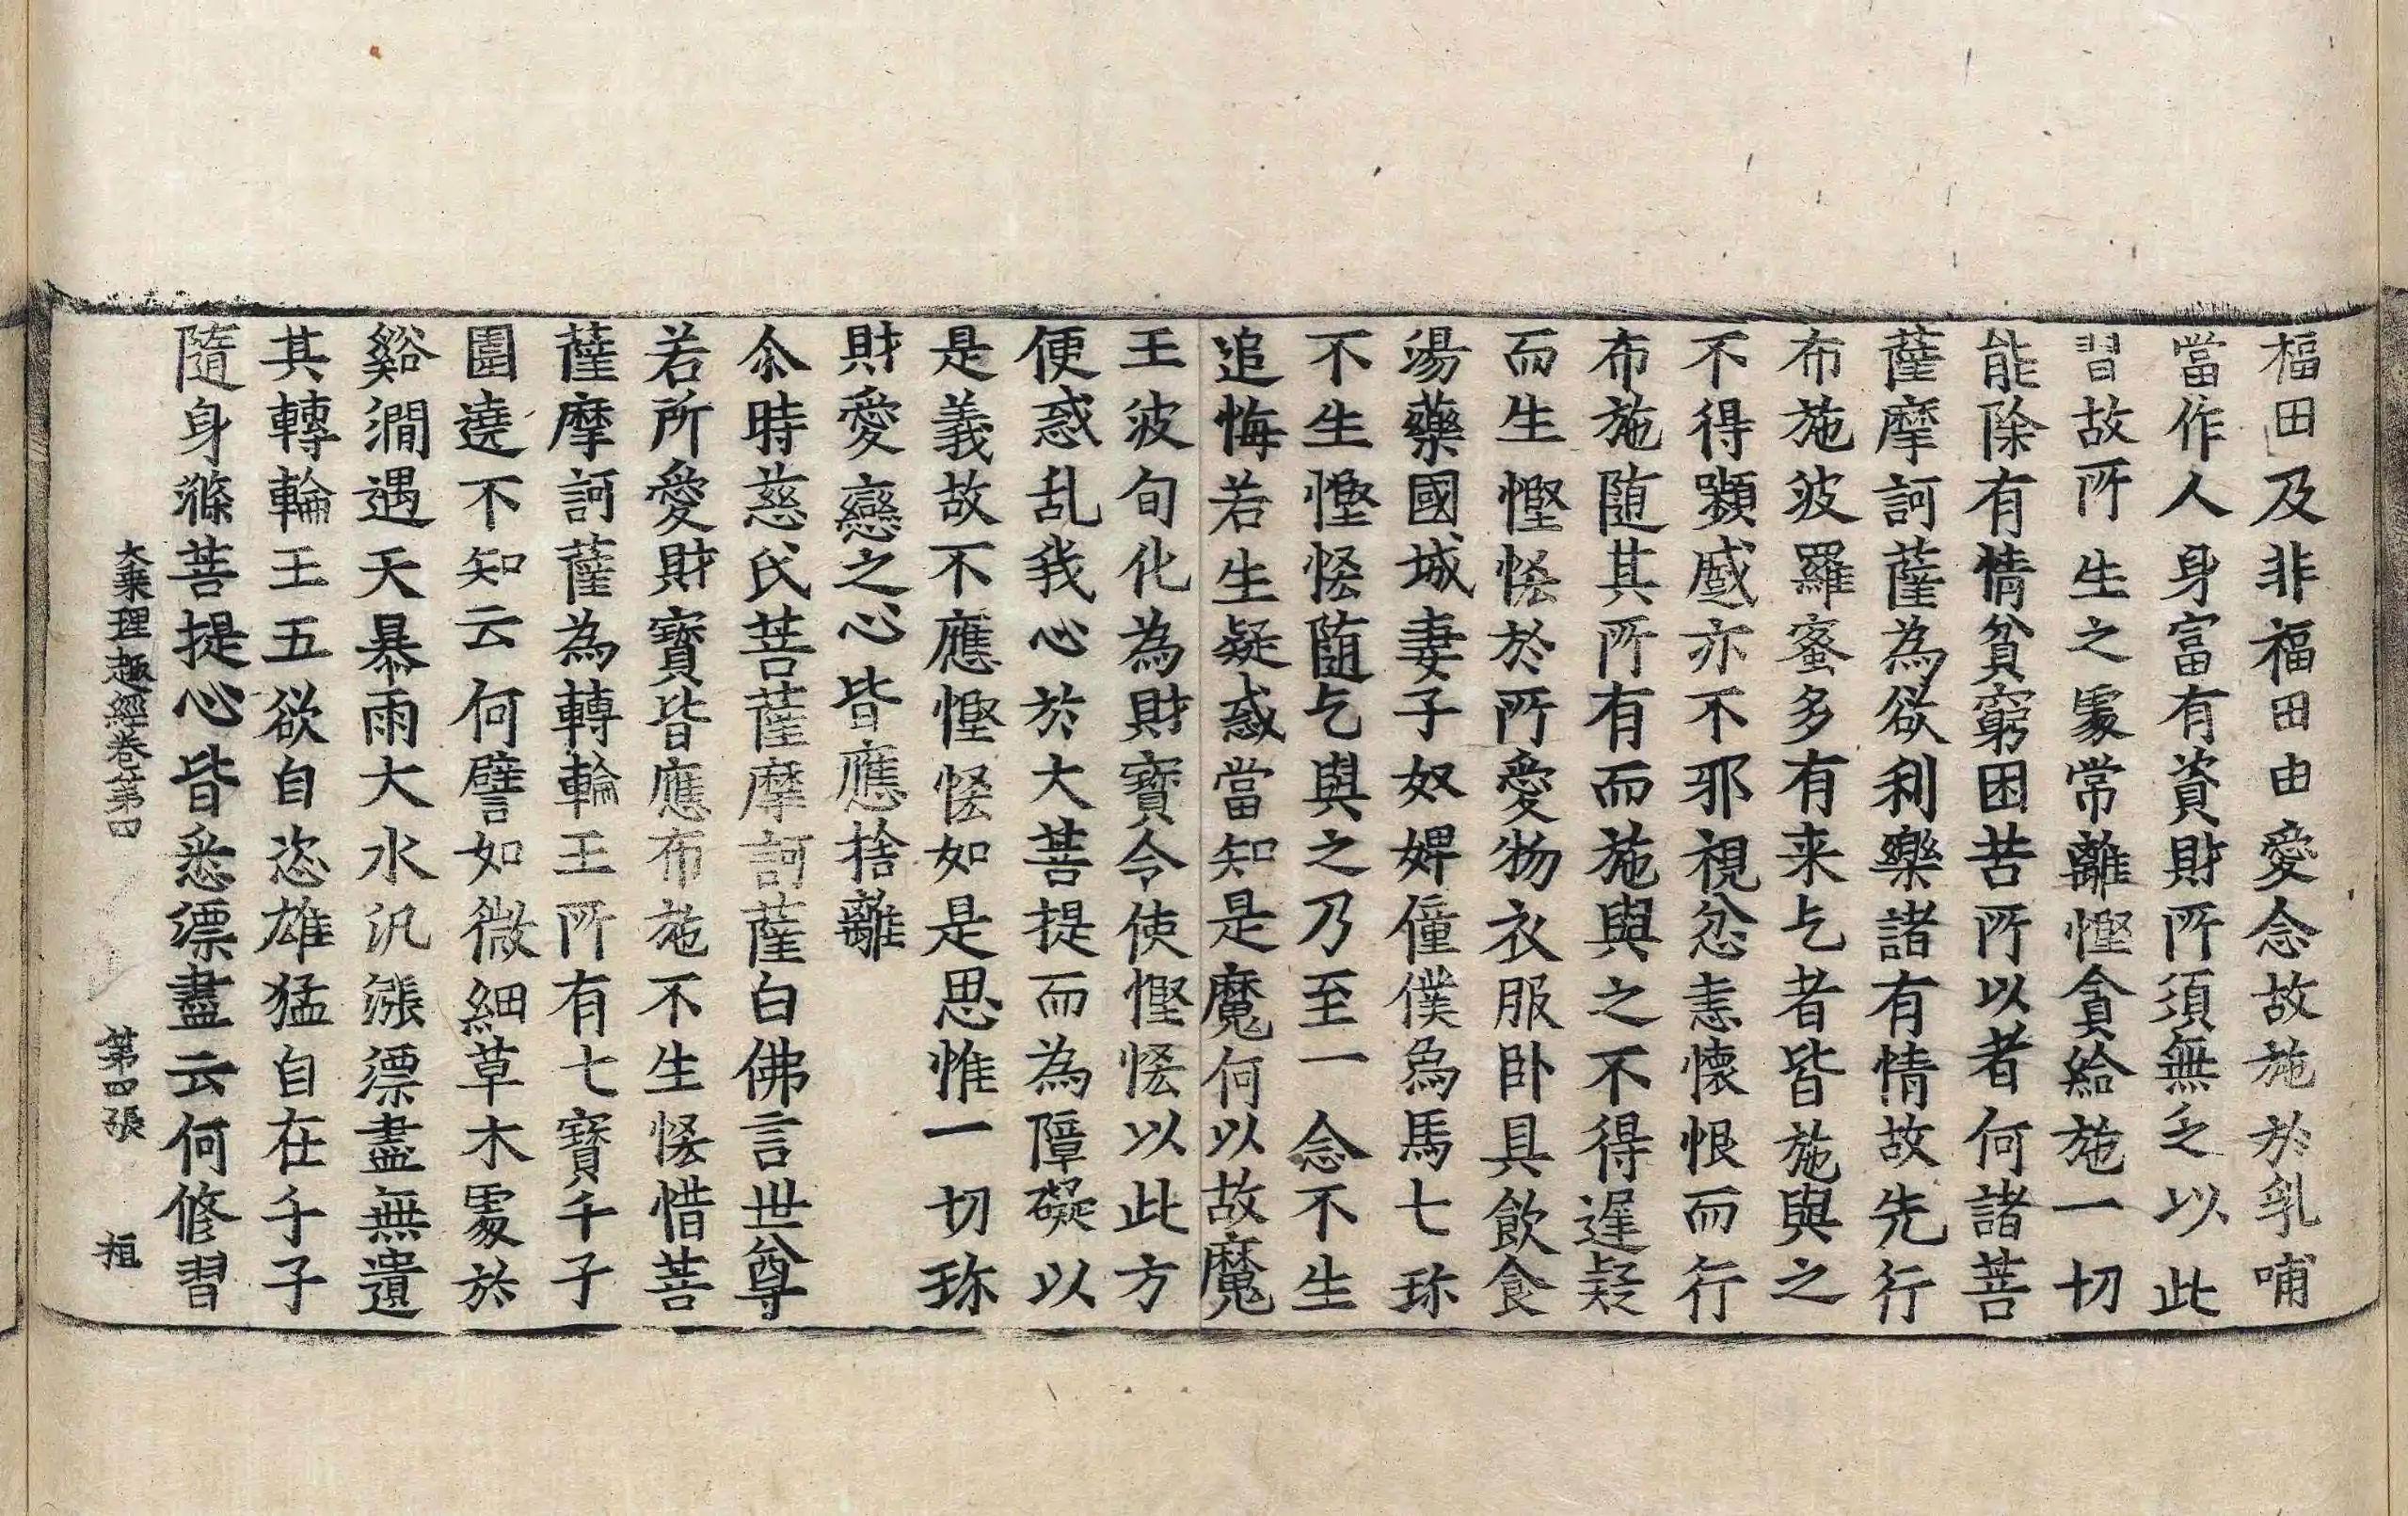 福田及非福田由愛念故施於乳哺
當作人身富有資財所須無乏以此
習故所生之處常離慳貪給施一切
能除有情貧窮困苦所以者何諸菩
薩摩訶薩為欲利樂諸有情故先行
布施波羅蜜多有来乞者皆施與之
不得顰慼亦不邪視忿恚懷恨而行
布施随其所有而施與之不得遲疑
而生慳悋於所愛物衣服卧具飲食
湯藥國城妻子奴婢僮僕為馬七珎
不生慳悋随乞與之乃至一念不生
追悔若生疑惑當知是魔何以故魔
王波旬化為財寶令使慳悋以此方
便惑乱我心於大菩提而為障礙以
是義故不應慳悋如是思惟一切珎
財愛戀之心皆應捨離
尒時慈氏菩薩摩訶薩白佛言世尊
若所愛財寶皆應布施不生悋惜菩
薩摩訶薩為轉輪王所有七寶千子
圍遶不知云何譬如微細草木處於
谿澗遇天暴雨大水汎漲漂盡無遺
其轉輪王五欲自恣雄猛自在千子
隨身滌菩提心皆悉漂盡云何修習
大乘理趣經卷第四 第四張 桓